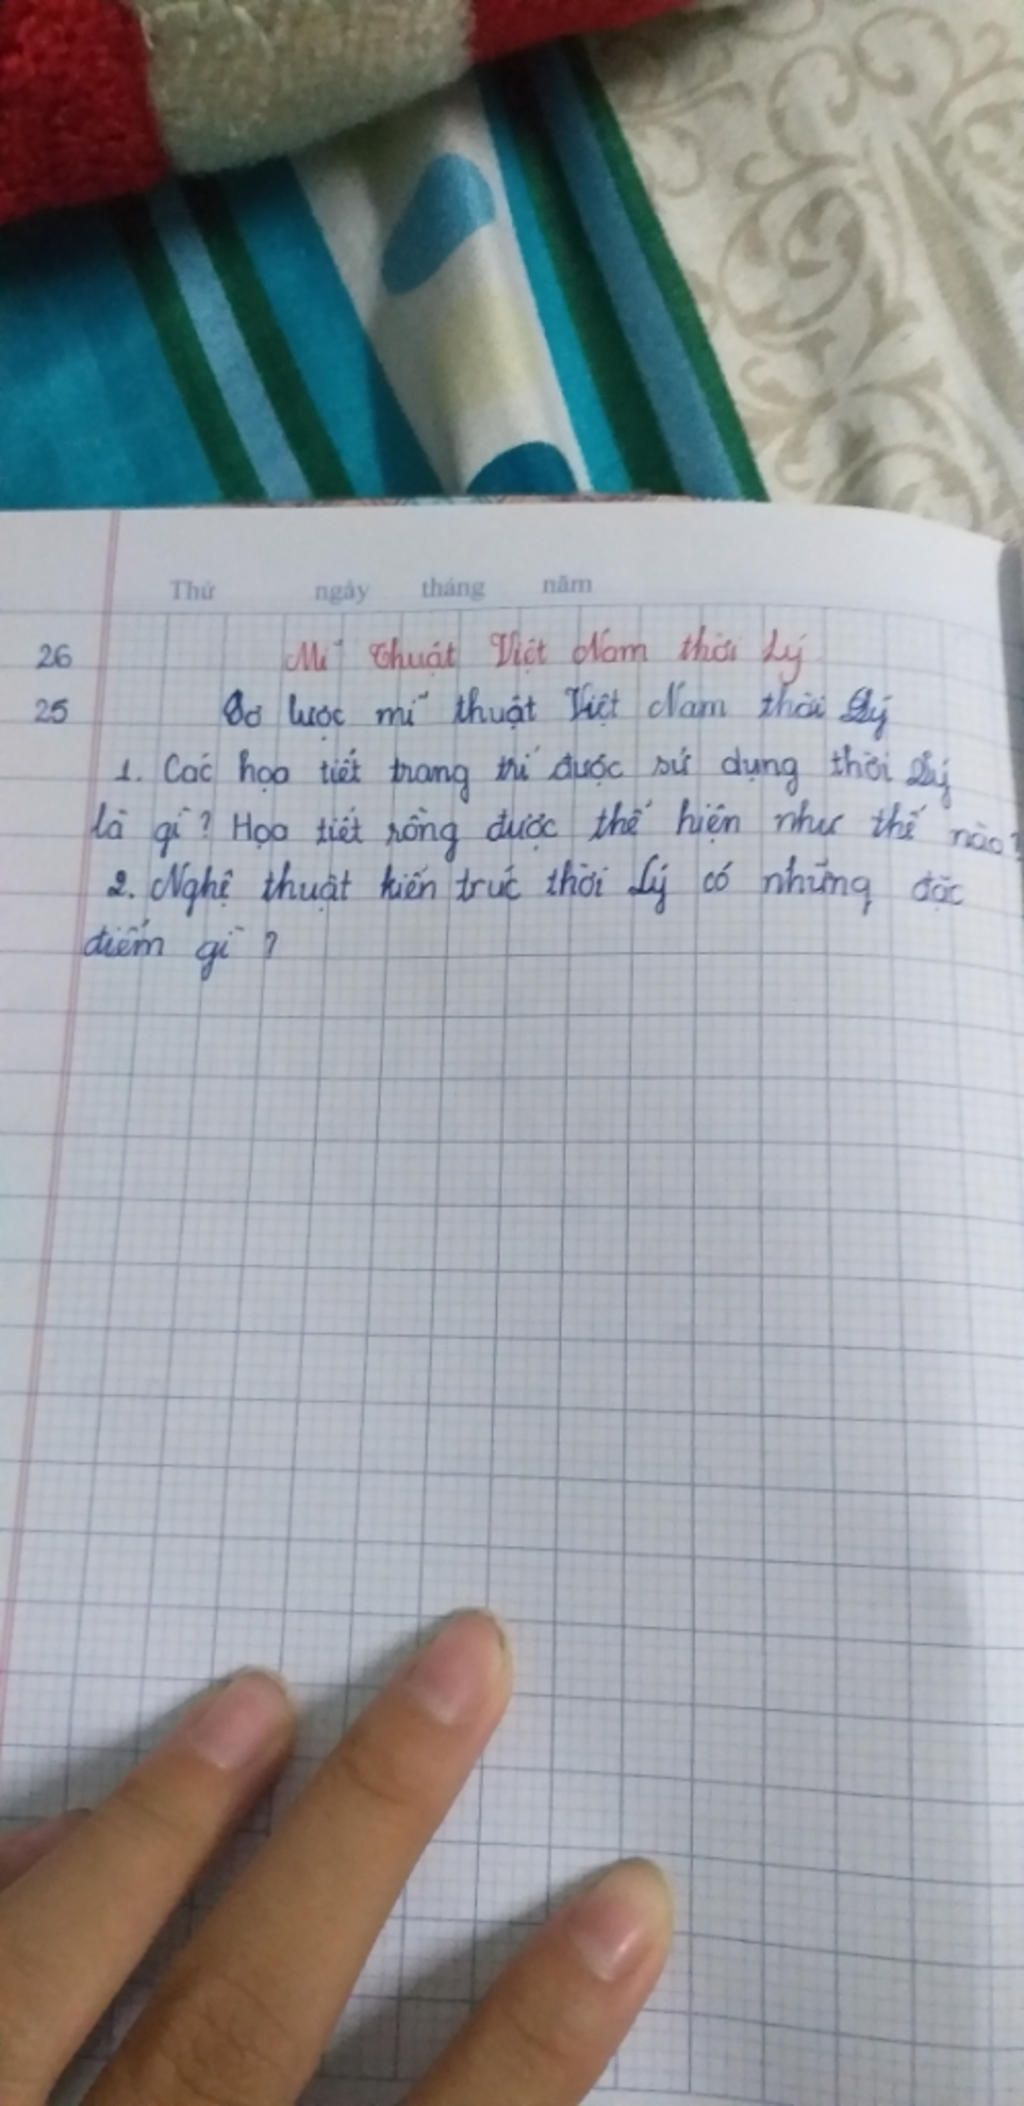 Thứ ngày tháng năm
26 Mĩ thuật Việt Nam thời Lý
25 Sơ lược mĩ thuật Việt Nam thời Lý
1. Các họa tiết trang trí được sử dụng thời Lý
là gì? Họa tiết rồng được thể hiện như thế nào?
2. Nghệ thuật kiến trúc thời Lý có những đặc
điểm gì?